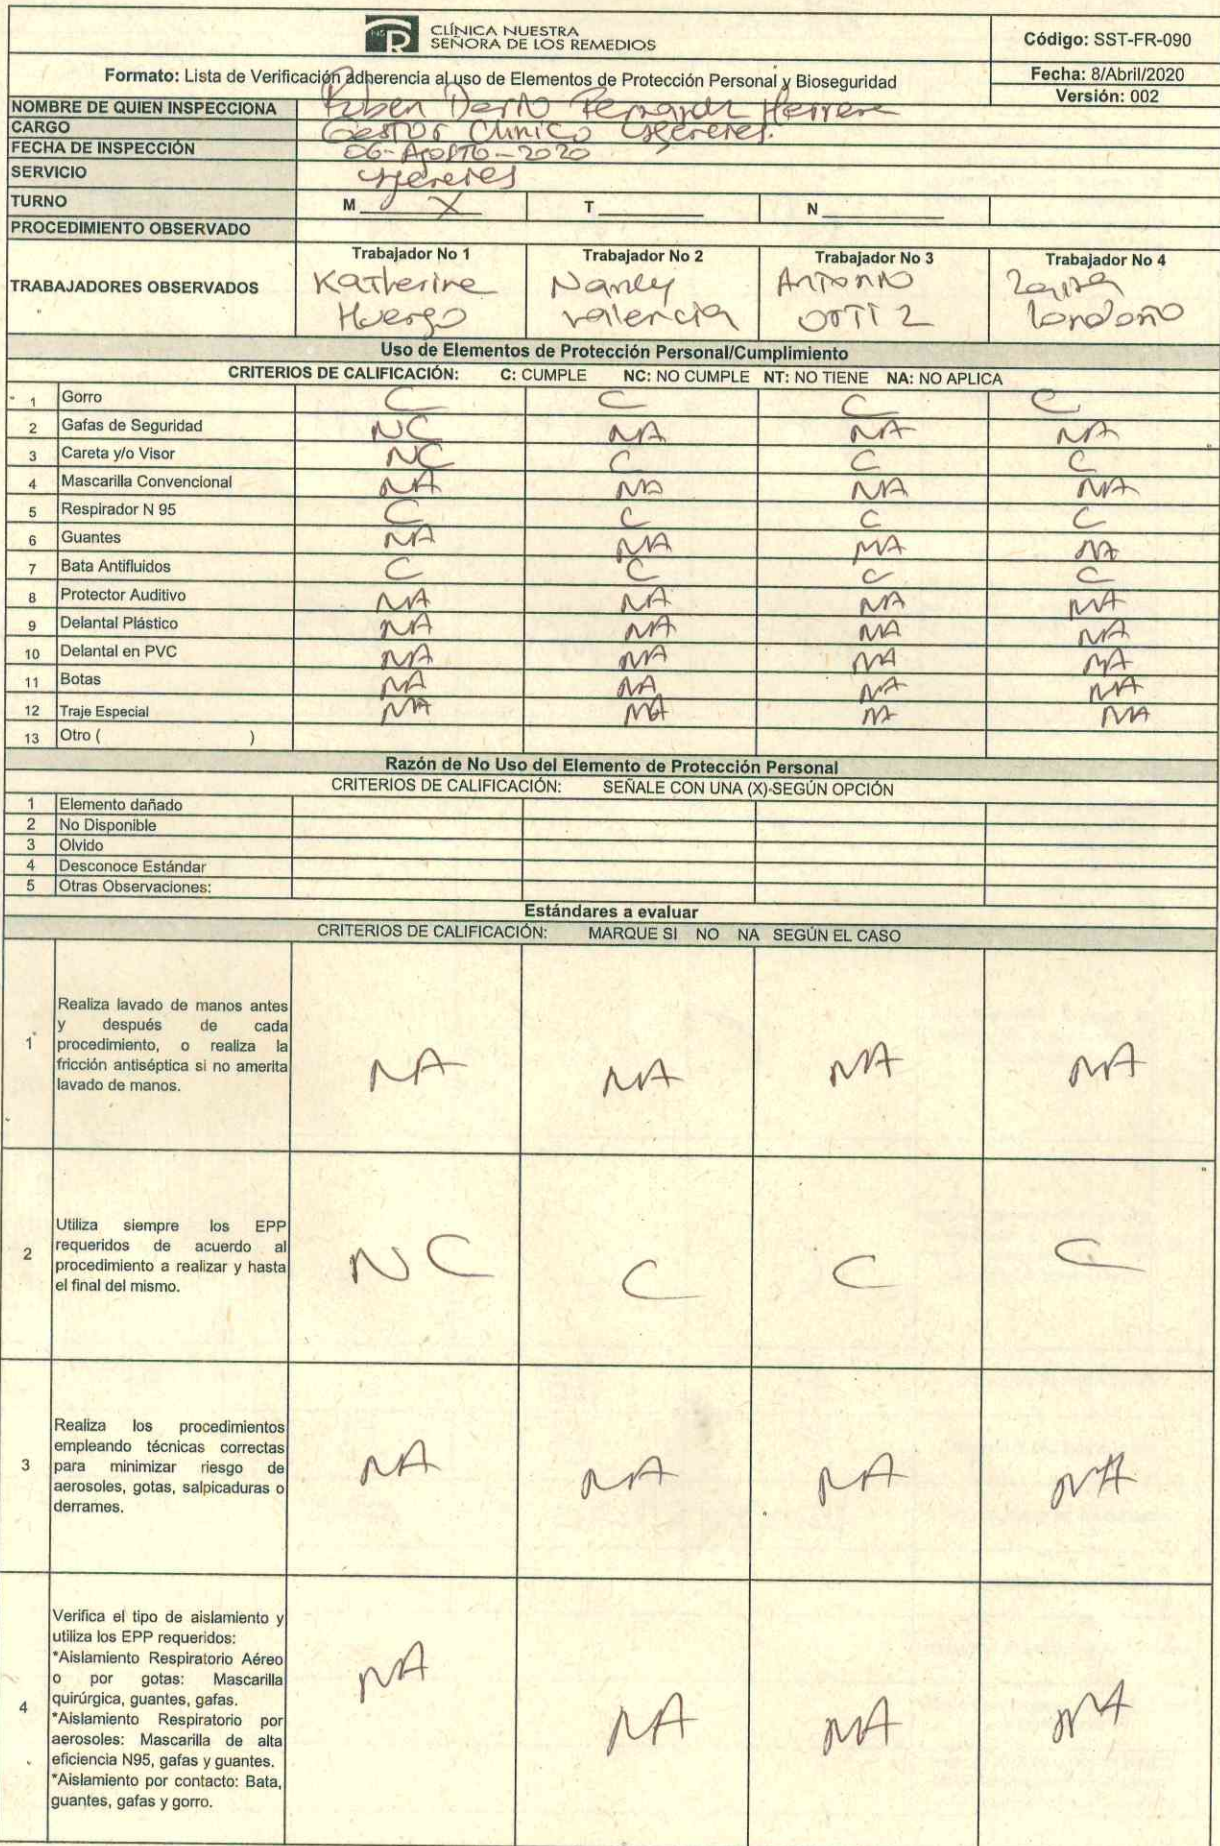 CLÍNICA NUESTRA
SEÑORA DE LOS REMEDIOS
Código: SST-FR-090
Formato: Lista de Verificación adherencia al uso de Elementos de Protección Personal y Bioseguridad
Fecha: 8/Abril/2020
Versión: 002
NOMBRE DE QUIEN INSPECCIONA Ruben Dario Herrera
CARGO Gestor Clinico
FECHA DE INSPECCIÓN 06-Agosto-2020
SERVICIO
TURNO M X T N
PROCEDIMIENTO OBSERVADO
TRABAJADORES OBSERVADOS
Trabajador No 1 Trabajador No 2 Trabajador No 3 Trabajador No 4
Katherine Nancy Antonio
Huergo Valencia Ortiz Londoño
Uso de Elementos de Protección Personal/Cumplimiento
CRITERIOS DE CALIFICACIÓN: C: CUMPLE NC: NO CUMPLE NT: NO TIENE NA: NO APLICA
1 Gorro C C C C
2 Gafas de Seguridad NC NA NA NA
3 Careta y/o Visor NC C C C
4 Mascarilla Convencional NA NA NA NA
5 Respirador N 95 C C C C
6 Guantes NA NA NA NA
7 Bata Antifluidos C C C C
8 Protector Auditivo NA NA NA NA
9 Delantal Plástico NA NA NA NA
10 Delantal en PVC NA NA NA NA
11 Botas NA NA NA NA
12 Traje Especial NA NA NA NA
13 Otro ( )
Razón de No Uso del Elemento de Protección Personal
CRITERIOS DE CALIFICACIÓN: SEÑALE CON UNA (X)-SEGÚN OPCIÓN
1 Elemento dañado
2 No Disponible
3 Olvido
4 Desconoce Estándar
5 Otras Observaciones:
Estándares a evaluar
CRITERIOS DE CALIFICACIÓN: MARQUE SI NO NA SEGÚN EL CASO
1
Realiza lavado de manos antes
y después de cada
procedimiento, o realiza la
fricción antiséptica si no amerita
lavado de manos.
NA NA NA NA
2
Utiliza siempre los EPP
requeridos de acuerdo al
procedimiento a realizar y hasta
el final del mismo.
NC C C C
3
Realiza los procedimientos
empleando técnicas correctas
para minimizar riesgo de
aerosoles, gotas, salpicaduras o
derrames.
NA NA NA NA
4
Verifica el tipo de aislamiento y
utiliza los EPP requeridos:
*Aislamiento Respiratorio Aéreo
o por gotas: Mascarilla
quirúrgica, guantes, gafas.
*Aislamiento Respiratorio por
aerosoles: Mascarilla de alta
eficiencia N95, gafas y guantes.
*Aislamiento por contacto: Bata,
guantes, gafas y gorro.
NA NA NA NA